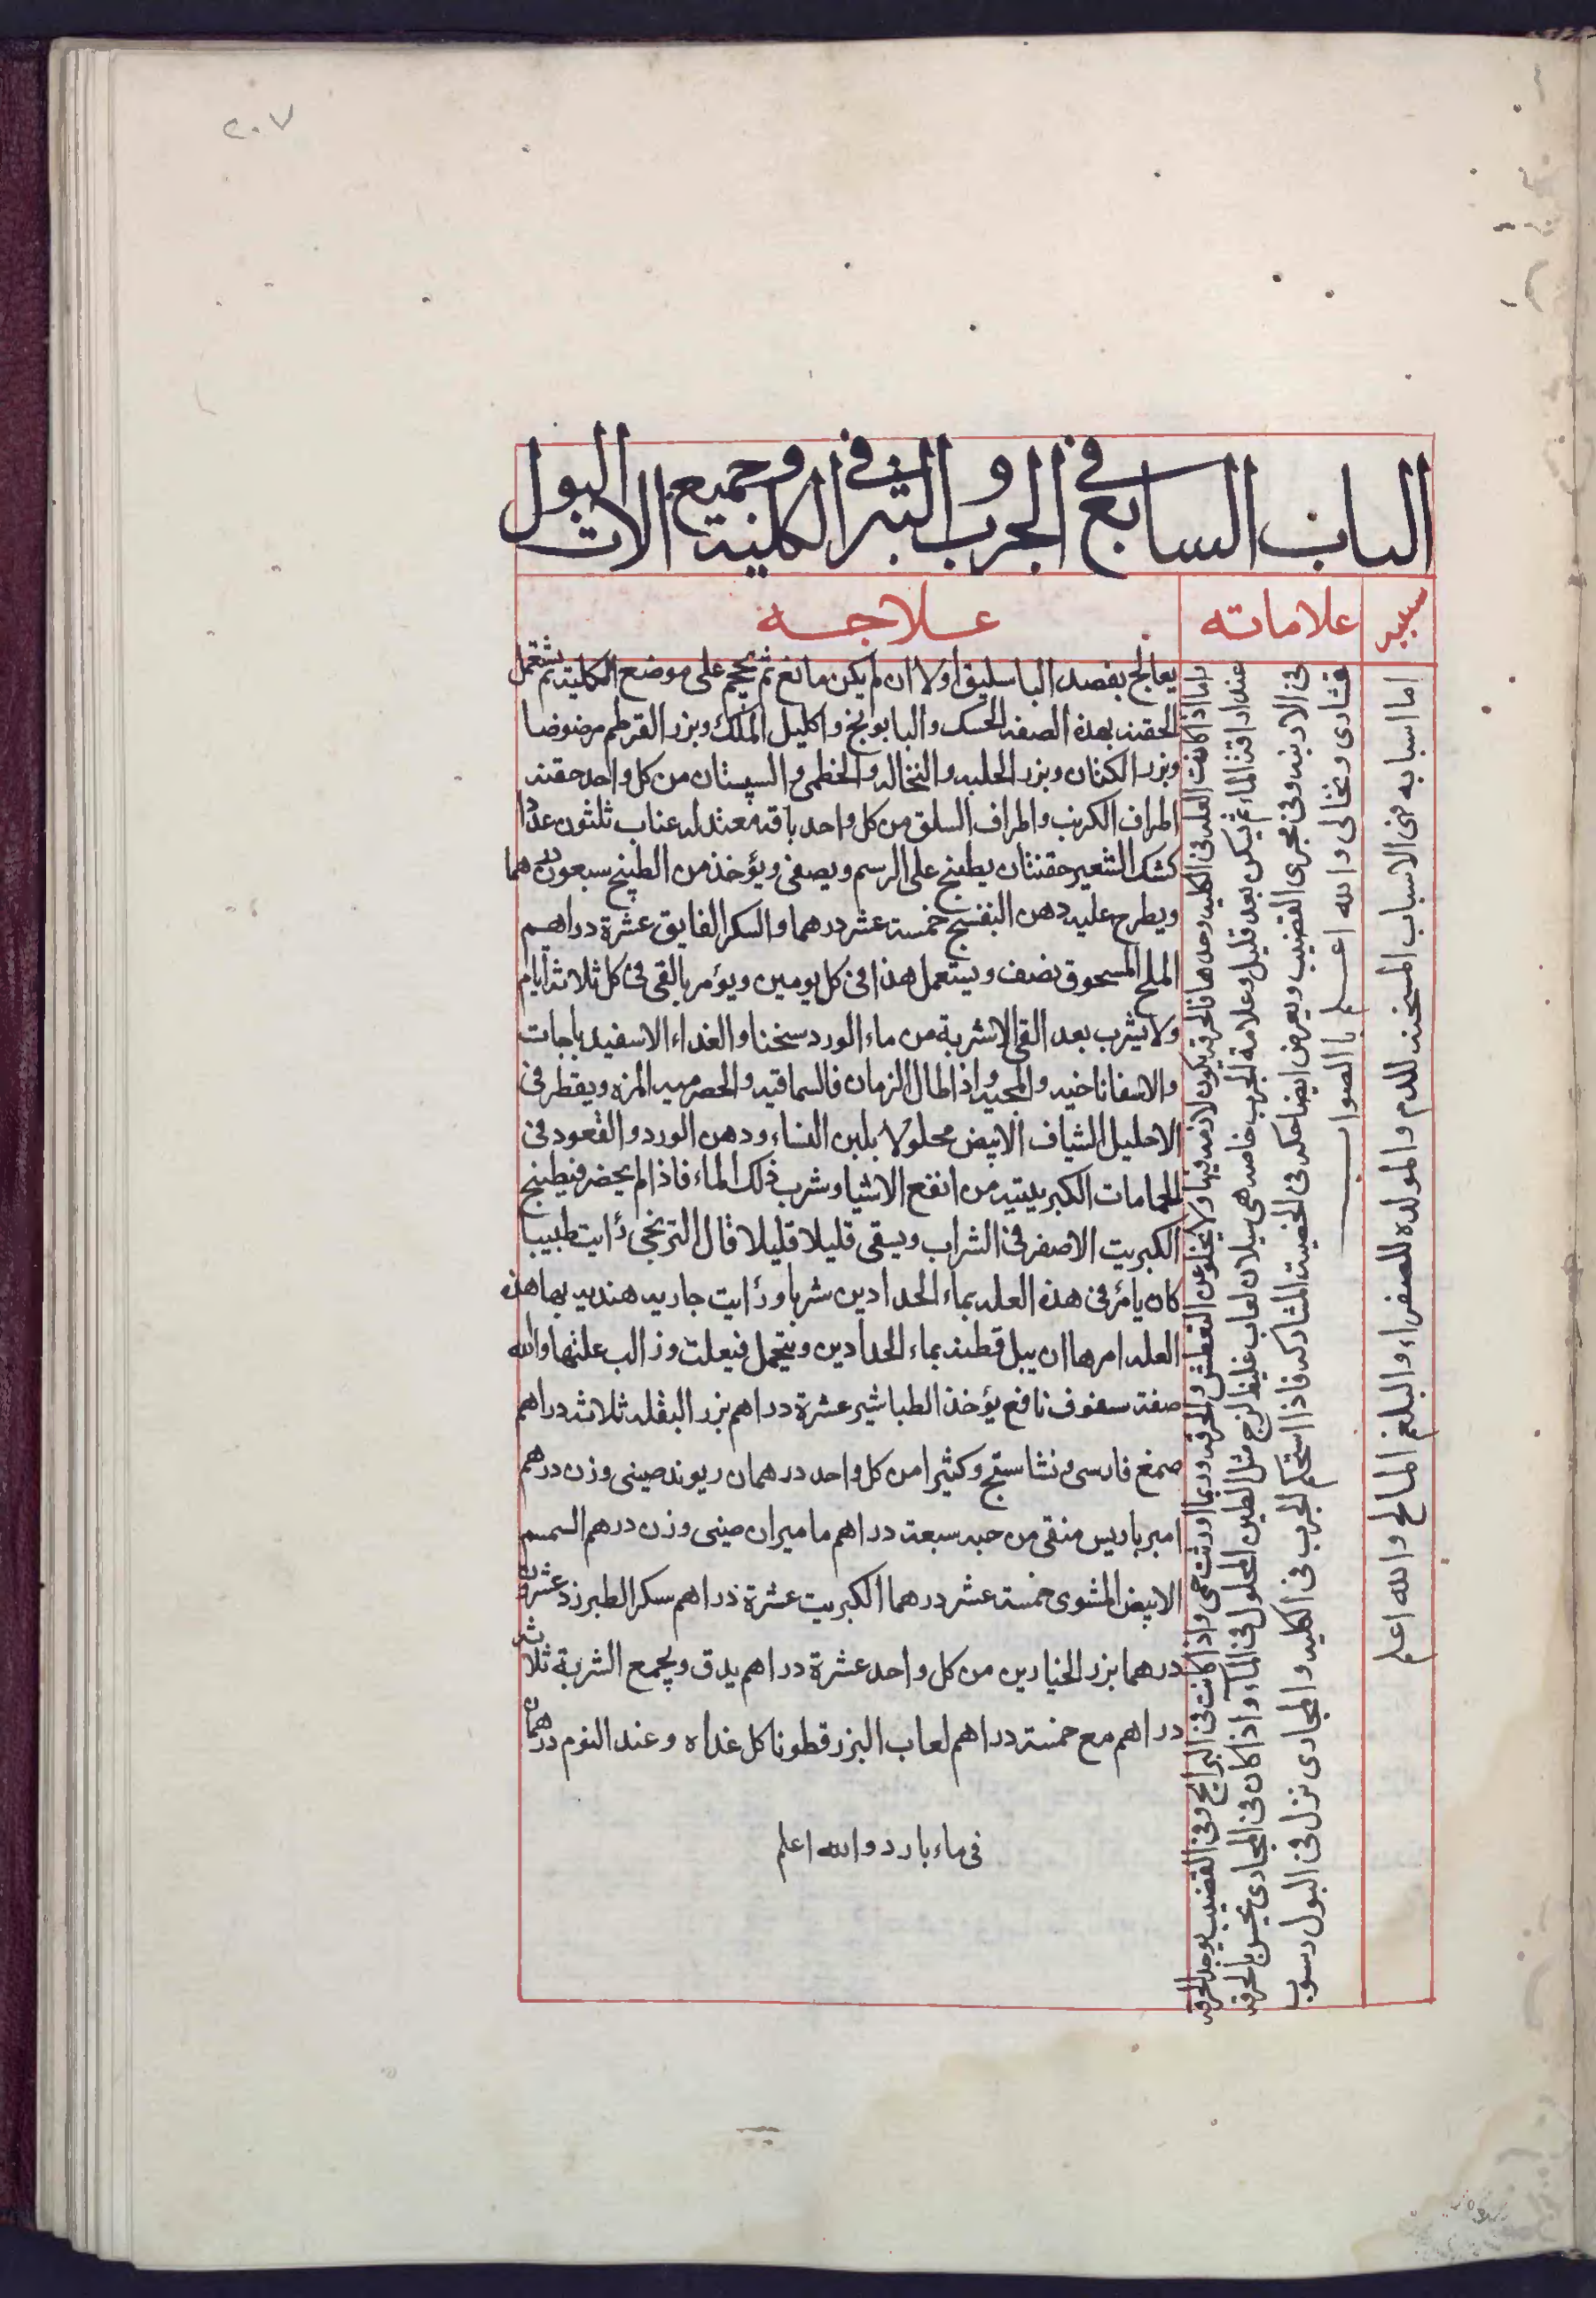 ٢٠٧
الباب السابع في الجرب والبثر في الكلية وجميع الات البول
سببه
علاماته
علاجه
اما اسبابه فمن الاسباب المسخنه للدم والمولده للصفراء والبلغم المالح والله اعلم
اما اذا كانت العله في الكليه وحدها فالحرقه يكون لازمه فيها ولا يخلو من العطش والحرقه وربما اورثت حمى واذا كانت في البرابخ وفي القضيب يوجد الحرقه
عند اراقة الماء ثم يسكن بعد قليل وعلامة الجرب خاصه هي سيلان لعاب غليظ لزج مثل الطين المحلول في الماء واذا كان في المجاري يحس بالحرقه
في الاربيه وفي مجرى القضيب ويعرض ايضا حكه في الخصيت المشاركه فاذا استحكم الجرب في الكليه والمجاري نزل في البول رسوب
قشاري ونخالي والله اعلم بالصواب
يعالج بفصد الباسليق اولا ان لم يكن مانع ثم يحجم على موضع الكلية ثم يستعمل
الحقنه بهذه الصفه الحسك والبابونج واكليل الملك وبزر القرطم مرضوضا
وبزر الكتان وبزر الحلبه والنخاله والخطمي والسپستان من كل واحد حفنه
اطراف الكرنب واطراف السلق من كل واحد باقه معتدله عناب ثلثون عددا
كشك الشعير حفنتان يطبخ على الرسم ويصفى ويؤخذ من الطبيخ سبعون درهما
ويطرح عليه دهن البنفسج خمسة عشر درهما والسكر الفايق عشرة دراهم
الملح المسحوق نصف ويستعمل هذا في كل يومين ويؤمر بالقي في كل ثلاثة ايام
ولا يشرب بعد القي الاشربة من ماء الورد سخنا والغداء الاسفيدباجات
والاسفاناخيه والمحيه واذا طال الزمان فالسماقيه والحصرميه المزه ويقطر في
الاحليل الشياف الابيض محلولا بلبن النساء ودهن الورد والقعود في
الحمامات الكبريتيه من انفع الاشيا وشرب ذلك الماء فاذا لم يحضر فيطبخ
الكبريت الاصفر في الشراب ويسقى قليلا قليلا قال الترنجي رايت طبيبا
كان يامر في هذه العله بماء الحدادين شربا ورايت جاريه هنديه بها هذه
العله امرها ان يبل قطنه بماء الحدادين ويتحمل فيعلت وزالت علتها والله
صفة سفوف نافع يؤخذ الطباشير عشرة دراهم بزر البقله ثلاثه دراهم
صمغ فارسي ونشاستج وكثيرا من كل واحد درهمان ريوند صيني وزن درهم
امبرباريس منقى من حبه سبعة دراهم ماميران صيني وزن درهم السمسم
الابيض المشوي خمسة عشر درهما الكبريت عشرة دراهم سكر الطبرزد عشرون
درهما بزر الخيارين من كل واحد عشرة دراهم يدق ويجمع الشربة ثلاثة
دراهم مع خمسة دراهم لعاب البزرقطونا كل غداة وعند النوم درهمان
في ماء بارد والله اعلم